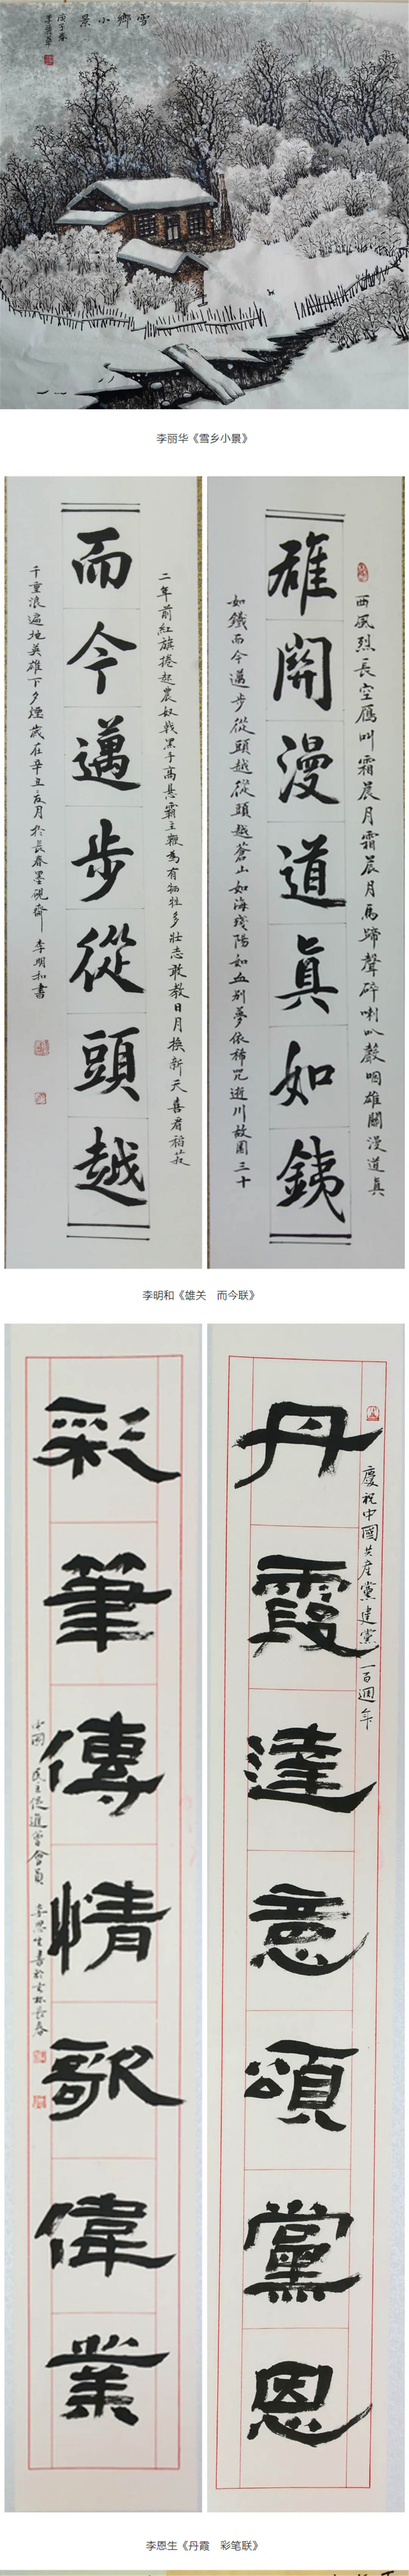 雪鄉小景
庚子春
李丽华《雪乡小景》
雄關漫道真如鐵
西風烈長空雁叫霜晨月霜晨月馬蹄聲碎喇叭聲咽雄關漫道真
如鐵而今邁步從頭越從頭越蒼山如海殘陽如血别夢依稀咒逝川故園三十
二年前紅旗捲起農奴戟黑手高懸霸主鞭為有犧牲多壯志敢教日月換新天喜看稻菽
而今邁步從頭越
千重浪遍地英雄下夕煙歲在辛丑
於長春墨硯齋 李明和書
李明和《雄关 而今联》
慶祝中國共産黨建黨一百週年
丹霞達意頌黨恩
彩筆傳情歌偉業
中國民主促進會會員 李恩生書於吉林長春
李恩生《丹霞 彩笔联》